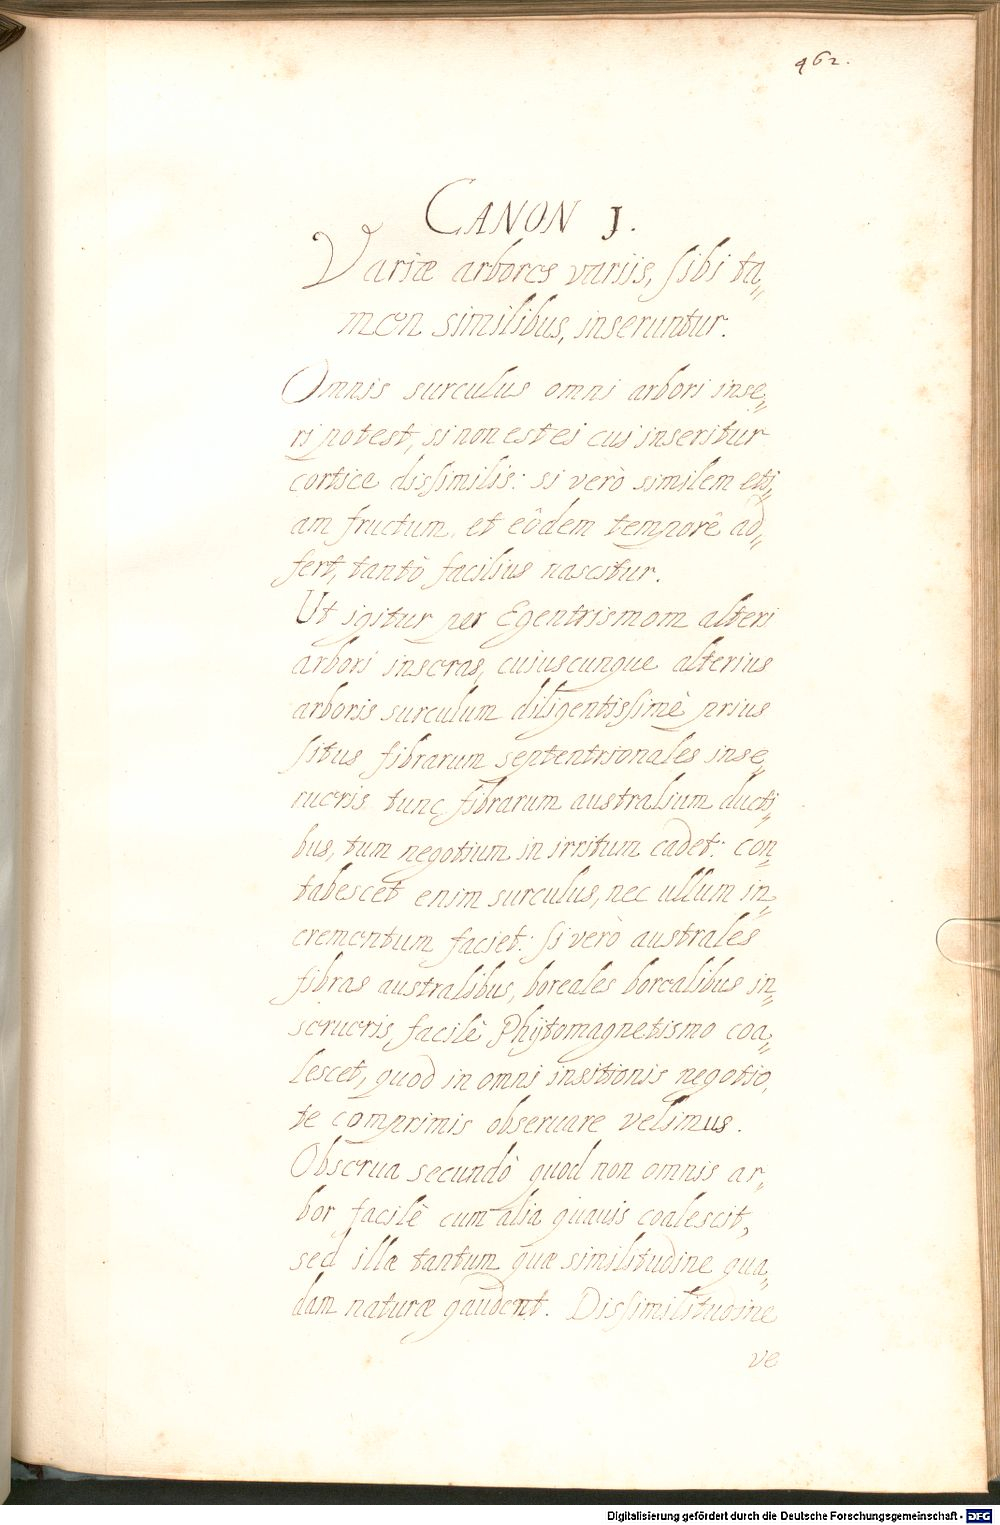 462.
CANON J.
Variæ arbores variis, sibi ta„
men similibus, inseruntur.
Omnis surculus omni arbori inse„
ri potest, si non est ei cui inseritur
cortice dissimilis: si verò similem eti„
am fructum et eôdem temporê ad„
fert, tantò facilius nascitur.
Ut igitur per Egentrismom alteri
arbori inseras, cuiuscunque alterius
arboris surculum diligentissimè prius
situs fibrarum septentrionales inse„
rueris tunc fibrarum australium ducti„
bus, tum negotium in irritum cadet: con„
tabescet enim surculus, nec ullum in„
crementum faciet: si verò australes
fibras australibus, boreales borealibus in„
serueris, facilè Phÿtomagnetismo coa„
lescet, quod in omni insitionis negotio,
te comprimis obseruare velimus.
Obserua secundò quod non omnis ar„
bor facilè cum alia quauis coalescit,
sed illæ tantum quæ similitudine qua„
dam naturæ gaudent. Dissimilitudine
ve
Digitalisierung gefördert durch die Deutsche Forschungsgemeinschaft - DFG